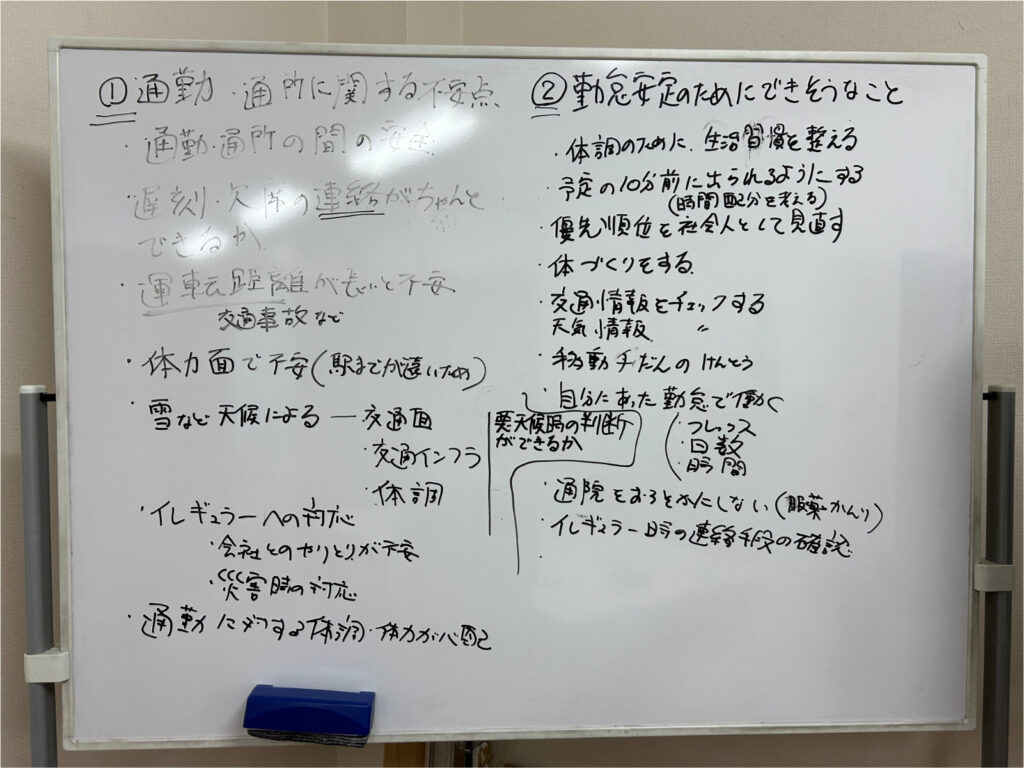 ① 通勤・通所に関する不安点
・通勤・通所の間の安全
遅刻・欠席の連絡がちゃんと
できるか
・運転距離が長いと不安
交通事故など
・体力面で不安(駅までが遠いため)
・雪など天候による ― 交通面
・交通インフラ
・体調
悪天候時の判断
ができるか
・イレギュラーへの対応
・会社とのやりとりが不安
・災害時の対応
・通勤に対する体調・体力が心配
② 勤怠安定のためにできそうなこと
・体調のために、生活習慣を整える
・予定の10分前に出られるようにする
(時間配分を考える)
・優先順位を社会人として見直す
・体づくりをする
・交通情報をチェックする
天気情報 〃
・移動手だんのけんとう
・自分にあった勤怠で働く
・フレックス
・日数
・時間
・通院をおろそかにしない(服薬かんり)
・イレギュラー時の連絡手段の確認